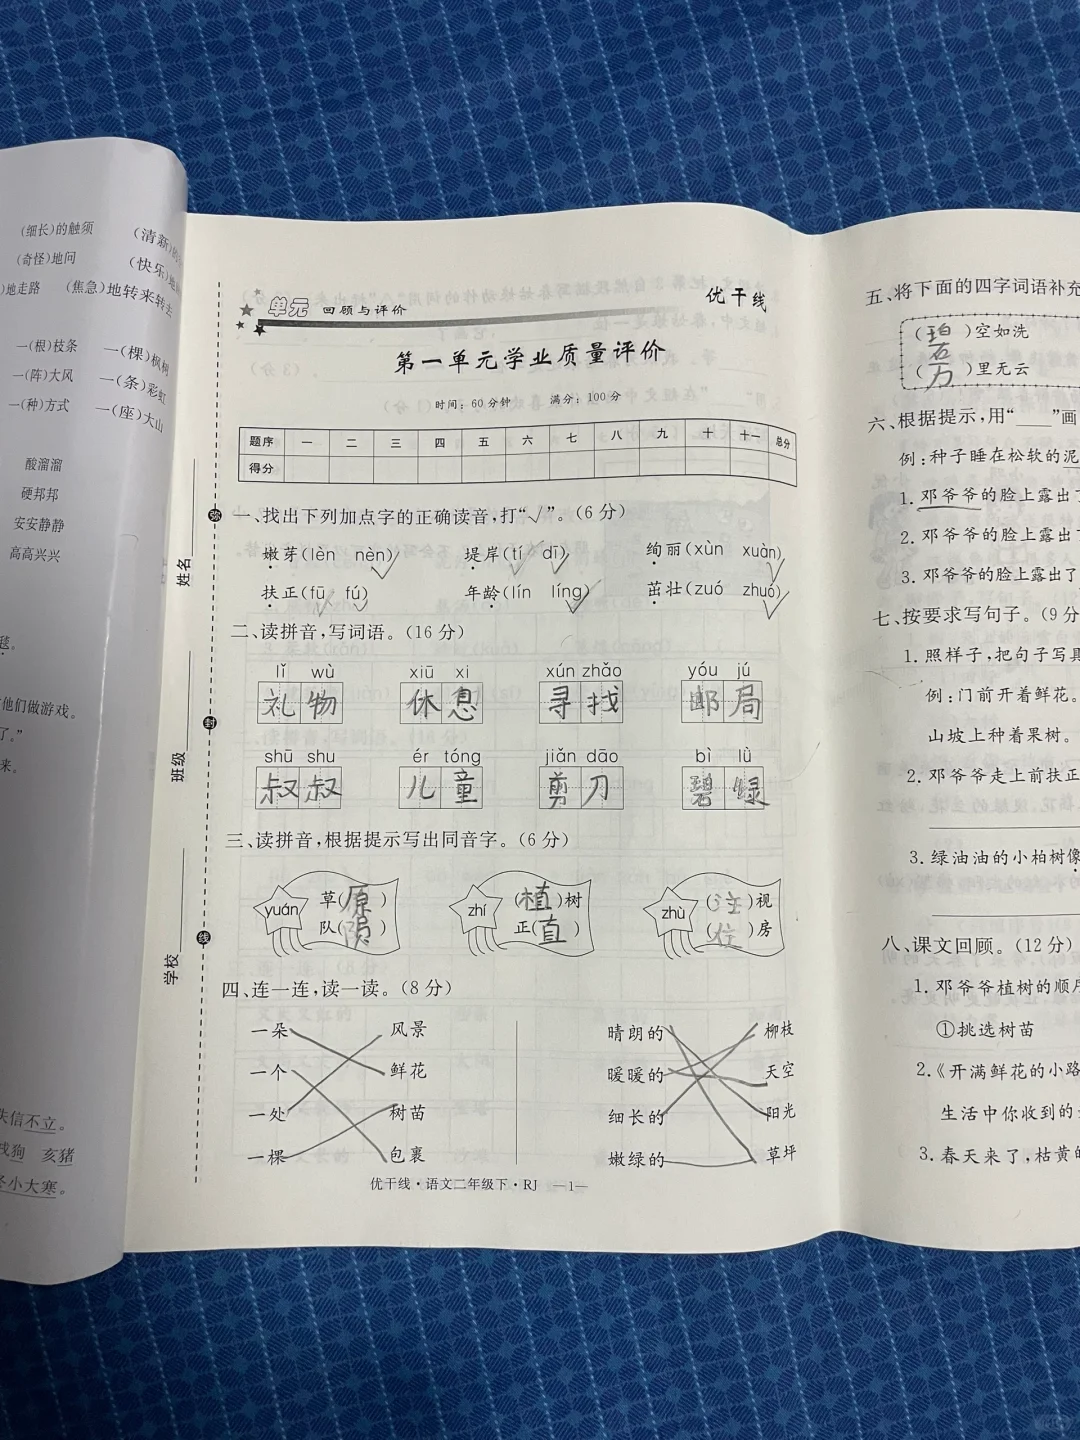 (细长)的触须
(清新)的
(奇怪)地问
(快乐)地
)地走路 (焦急)地转来转去
一(根)枝条 一(棵)枫树
一(阵)大风 一(条)彩虹
一(种)方式 一(座)大山
酸溜溜
硬邦邦
安安静静
高高兴兴
毯。
他们做游戏。
了。”
来。
失信不立。
戌狗 亥猪
冬小大寒。
学校 班级 姓名
弥 封 线
单元 回顾与评价 优干线
第一单元学业质量评价
时间:60分钟 满分:100分
题序 一 二 三 四 五 六 七 八 九 十 十一 总分
得分
一、找出下列加点字的正确读音,打“√”。(6分)
嫩芽(lèn nèn) 堤岸(tí dī) 绚丽(xùn xuàn)
扶正(fū fú) 年龄(lín líng) 茁壮(zuó zhuó)
二、读拼音,写词语。(16分)
lǐ wù xiū xi xún zhǎo yóu jú
礼物 休息 寻找 邮局
shū shu ér tóng jiǎn dāo bì lǜ
叔叔 儿童 剪刀 碧绿
三、读拼音,根据提示写出同音字。(6分)
yuán 草(原) zhí (植)树 zhù (注)视
队(陨) 正(直) (位)房
四、连一连,读一读。(8分)
一朵 风景 晴朗的 柳枝
一个 鲜花 暖暖的 天空
一处 树苗 细长的 阳光
一棵 包裹 嫩绿的 草坪
优干线·语文二年级下·RJ —1—
五、将下面的四字词语补充
(碧)空如洗
(万)里无云
六、根据提示,用“____”画
例:种子睡在松软的泥
1.邓爷爷的脸上露出了
2.邓爷爷的脸上露出了
3.邓爷爷的脸上露出了
七、按要求写句子。(9分
1.照样子,把句子写具
例:门前开着鲜花。
山坡上种着果树。
2.邓爷爷走上前扶正
3.绿油油的小柏树像
八、课文回顾。(12分)
1.邓爷爷植树的顺序
①挑选树苗
2.《开满鲜花的小路
生活中你收到的
3.春天来了,枯黄的